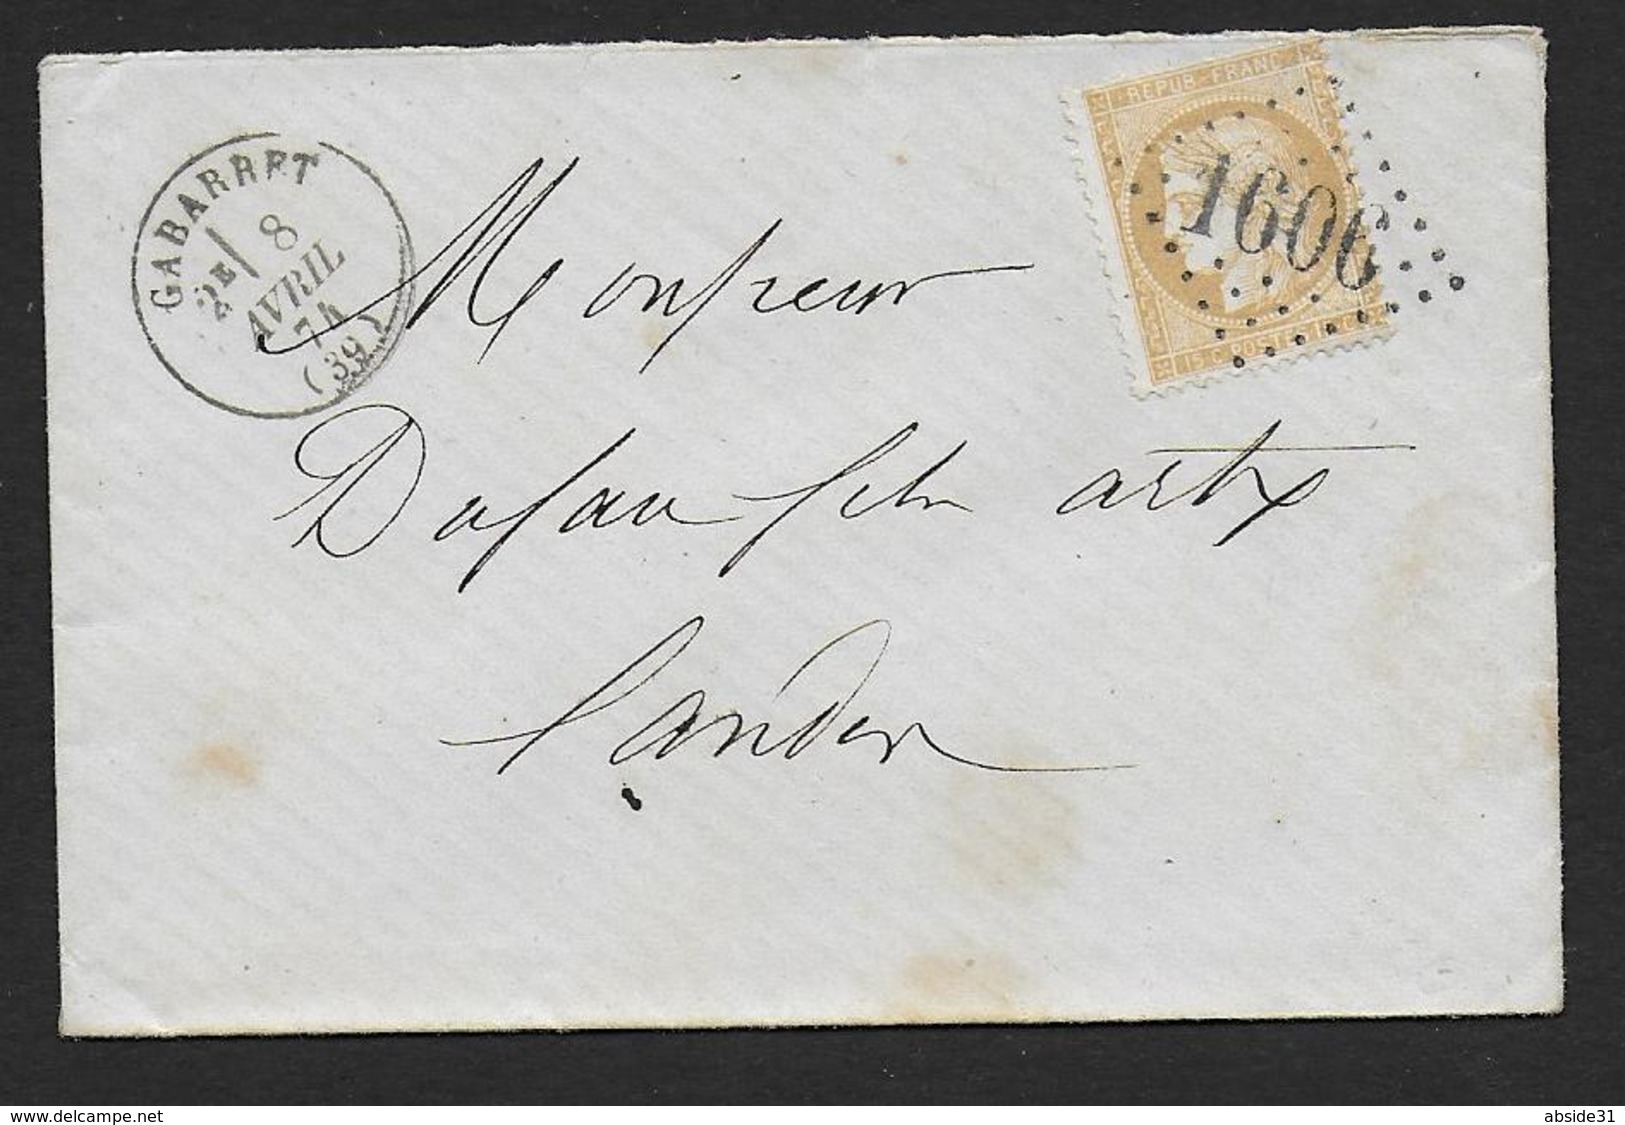 REPUB·FRANC
GABARRET
2E / 8
AVRIL
74
(39)
1606
15 C. POSTES 15 C.
Monsieur
Dufau fils
Landes
www.delcampe.net
abside31